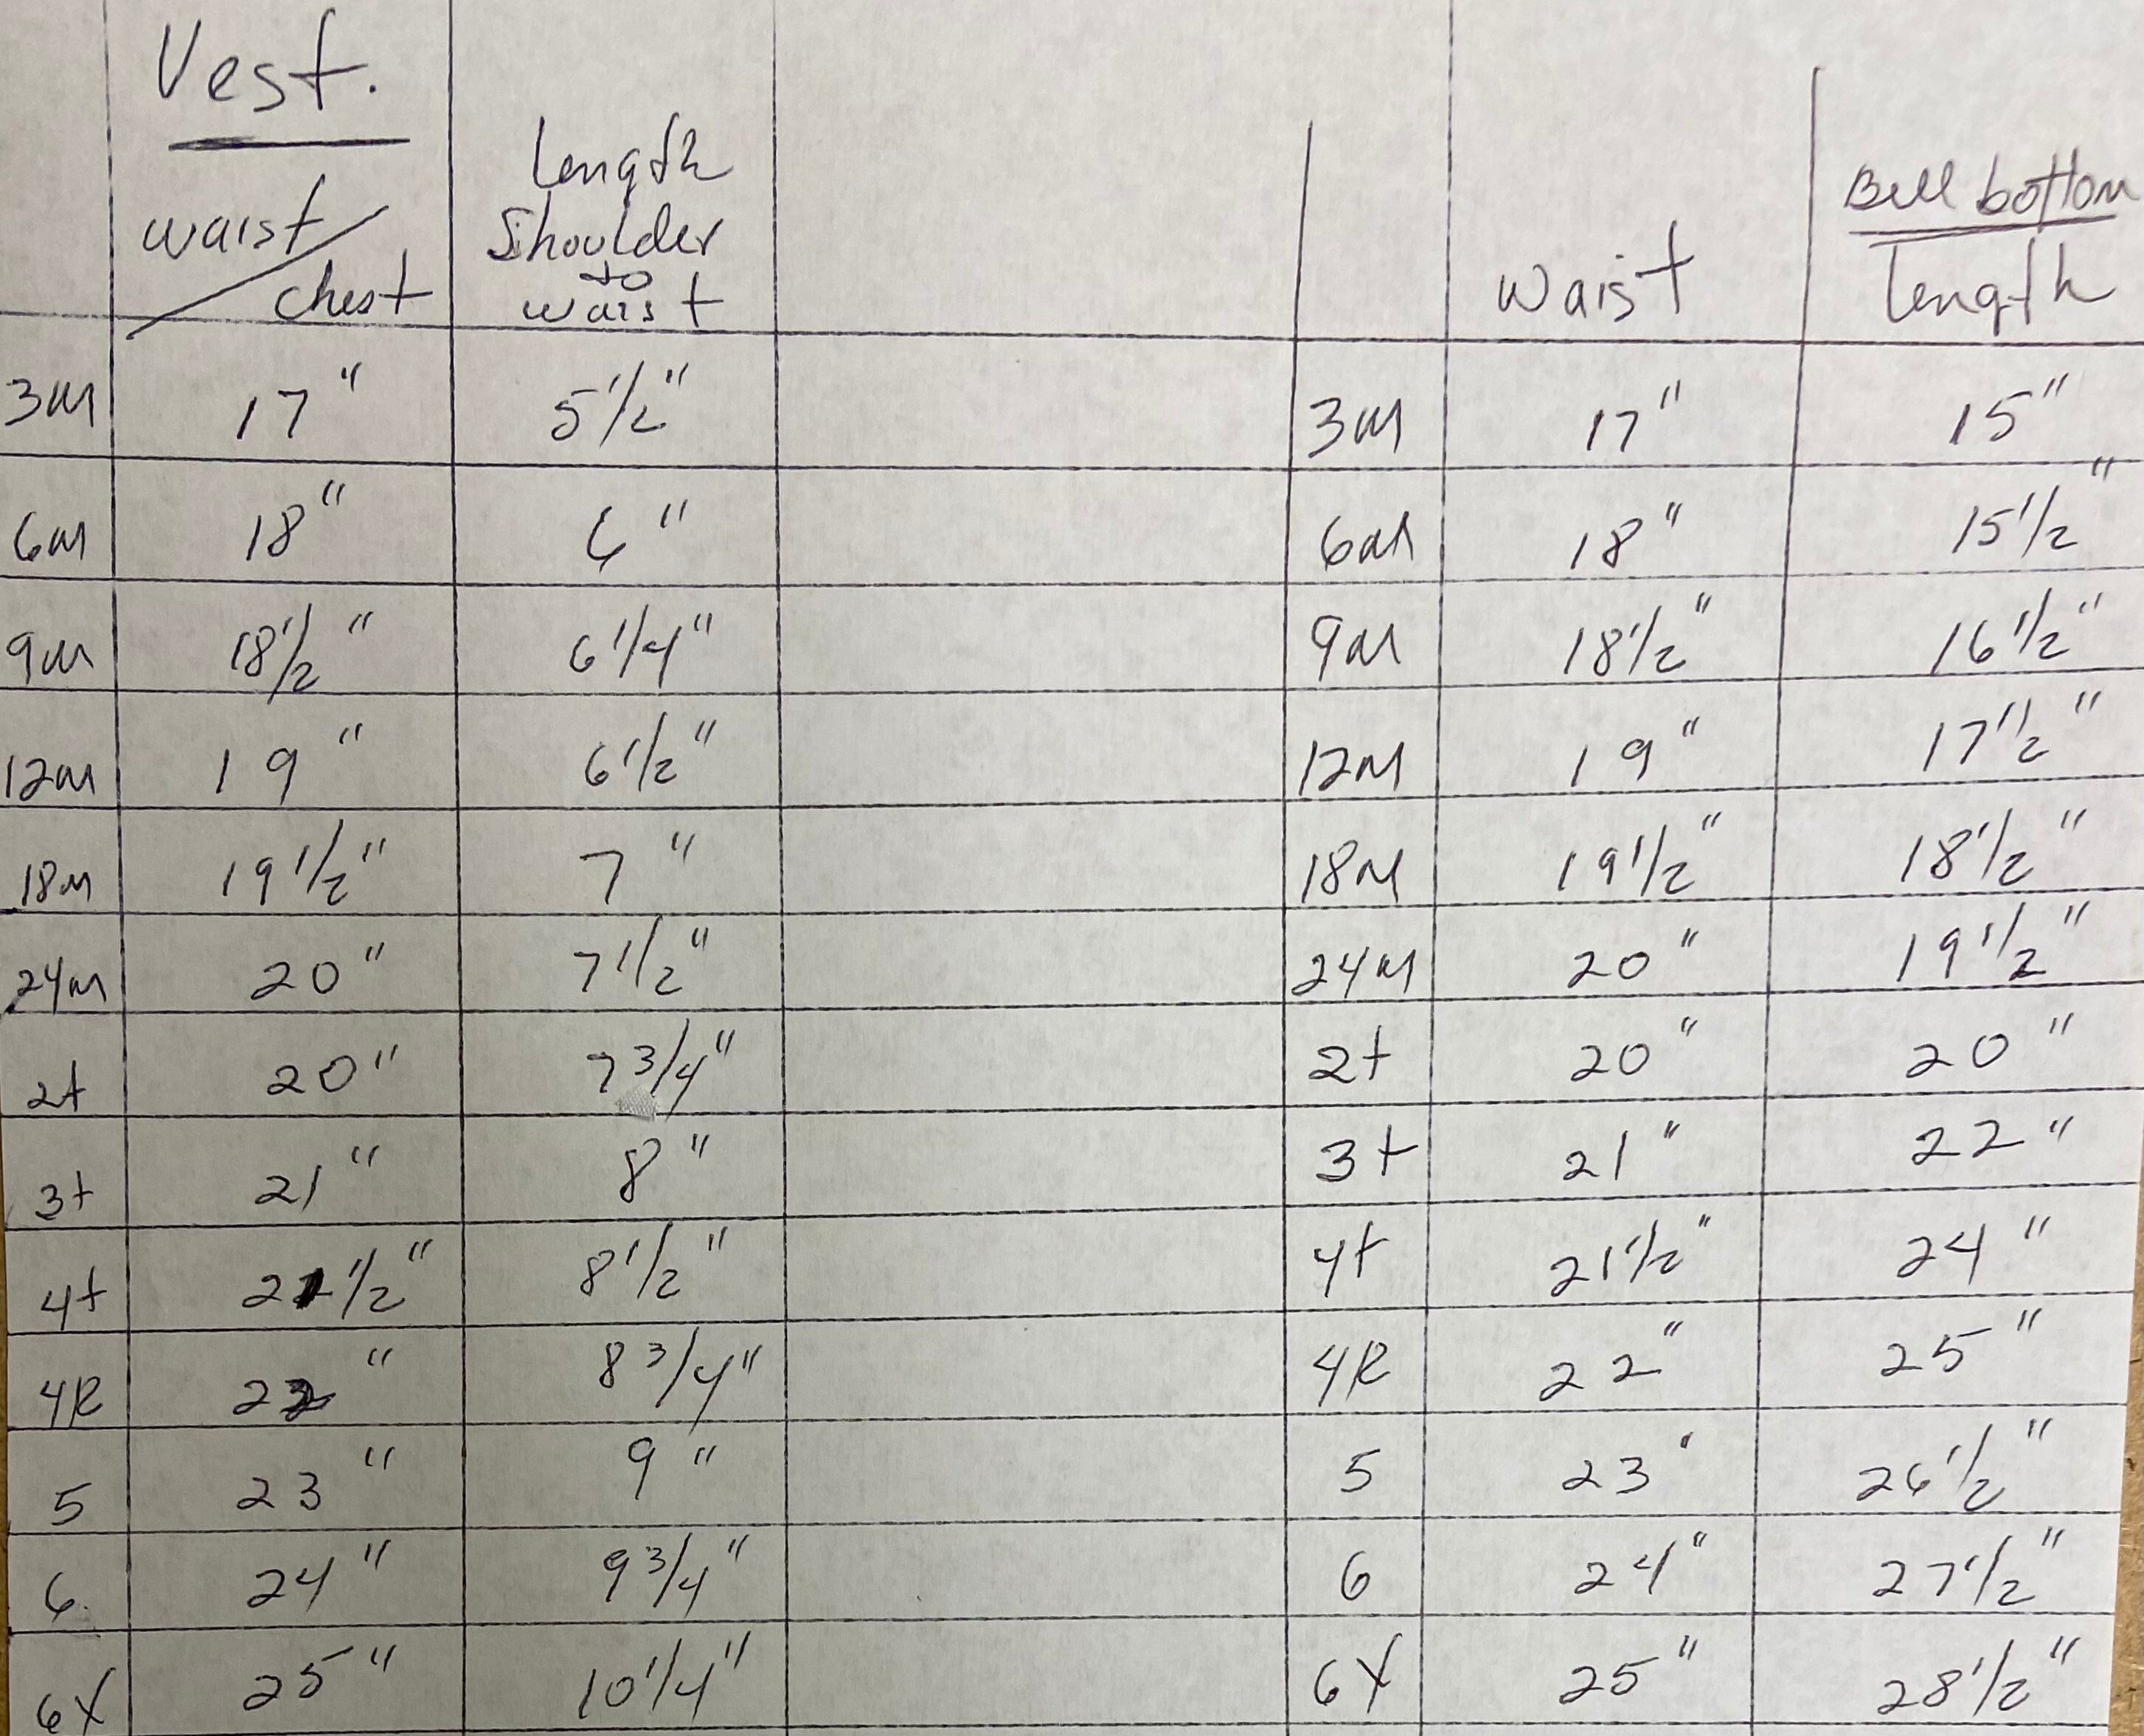 Vest.
waist/chest
Length
Shoulder
to
waist
waist
Bell bottom
Length
3M 17" 5 1/2" 3M 17" 15"
6M 18" 6" 6M 18" 15 1/2"
9M 18 1/2" 6 1/4" 9M 18 1/2" 16 1/2"
12M 19" 6 1/2" 12M 19" 17 1/2"
18M 19 1/2" 7" 18M 19 1/2" 18 1/2"
24M 20" 7 1/2" 24M 20" 19 1/2"
2t 20" 7 3/4" 2t 20" 20"
3t 21" 8" 3t 21" 22"
4t 21 1/2" 8 1/2" 4t 21 1/2" 24"
4R 22" 8 3/4" 4R 22" 25"
5 23" 9" 5 23" 26 1/2"
6. 24" 9 3/4" 6 24" 27 1/2"
6X 25" 10 1/4" 6X 25" 28 1/2"